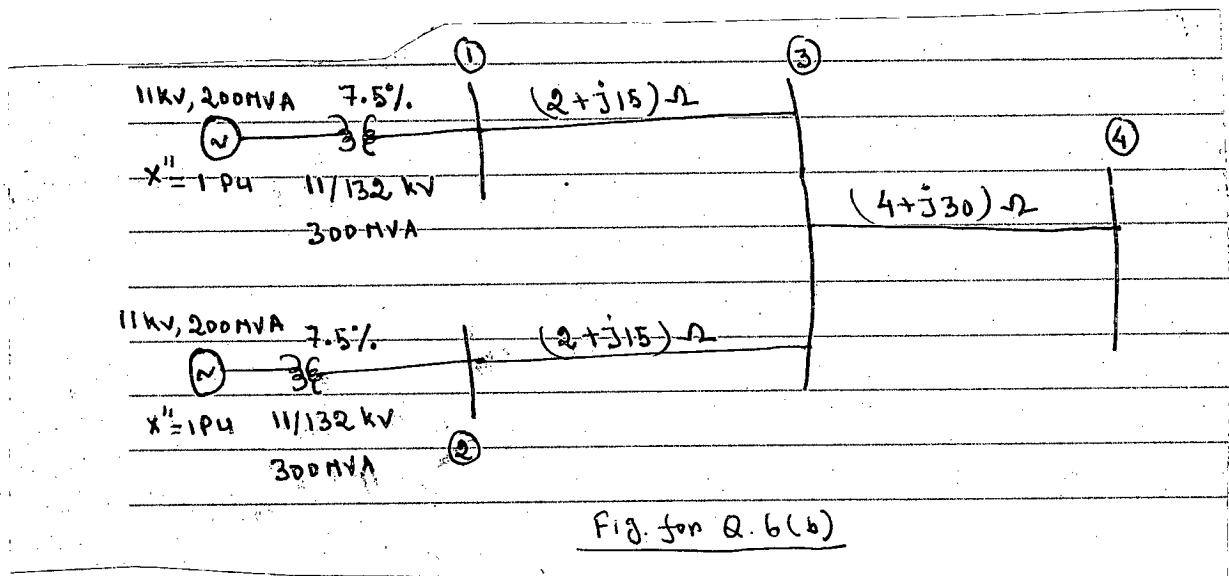 ①
③
11KV, 200MVA 7.5% (2+j15)Ω
④
X"=1PU 11/132 KV
(4+j30)Ω
300MVA
11KV, 200MVA 7.5% (2+j15)Ω
X"=1PU 11/132 KV
②
300MVA
Fig. for Q.6(b)